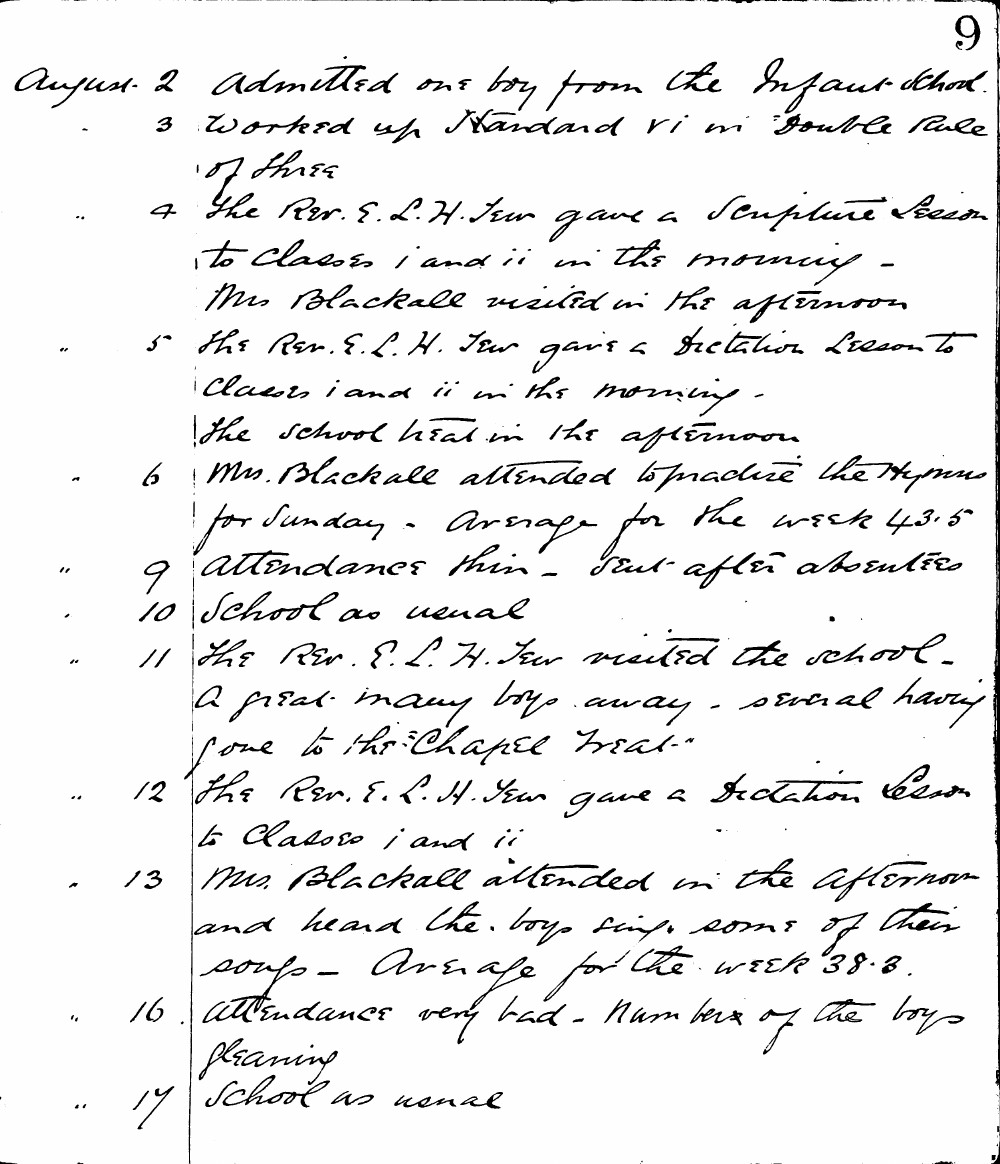 9
August 2 Admitted one boy from the Infant School.
" 3 Worked up Standard VI in Double Rule
of Three
" 4 The Rev. E. L. H. Tew gave a Scripture Lesson
to Classes i and ii in the morning -
Mrs Blackall visited in the afternoon
" 5 The Rev. E. L. H. Tew gave a Dictation Lesson to
Classes i and ii in the morning -
The School treat in the afternoon
" 6 Mrs. Blackall attended to practise the Hymns
for Sunday - Average for the week 43.5
" 9 Attendance thin - Sent after absentees
" 10 School as usual
" 11 The Rev. E. L. H. Tew visited the school -
A great many boys away - several having
gone to the "Chapel Treat"
" 12 The Rev. E. L. H. Tew gave a Dictation Lesson
to Classes i and ii
" 13 Mrs. Blackall attended in the Afternoon
and heard the boys sing some of their
songs - Average for the week 38.3.
" 16 Attendance very bad - Numbers of the boys
gleaning
" 17 School as usual